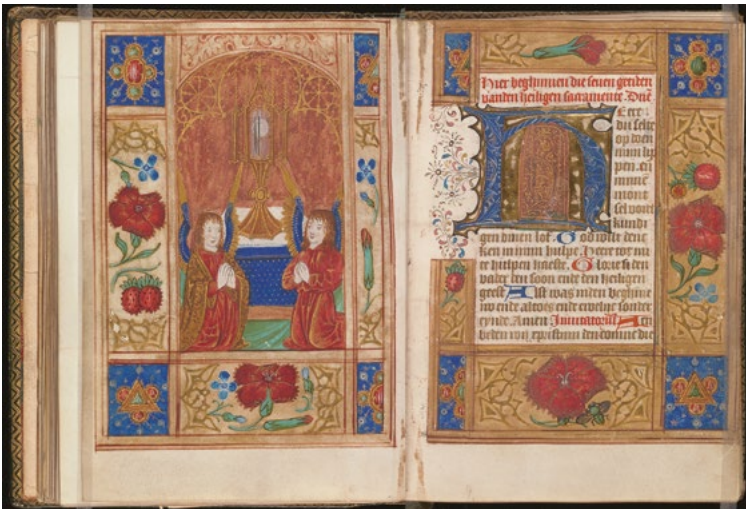 Hier beghinnen die seuen getiden
vanden heiligen sacramente. Dne
Heere
du selte
op doen
mijn lip
pen. en
mont
sel vort
kundi
gen dinen lof. God wilt denc
ken in mijn hulpe. Heere
te hulpen haeste. Glorie si den
vader den soon ende den heiligen
geest. Alst was inden beghinne
nv ende altoes ende ewelijc sonder
eynde. Amen Inuitatoriu. Aen
beden wij xpristum den die